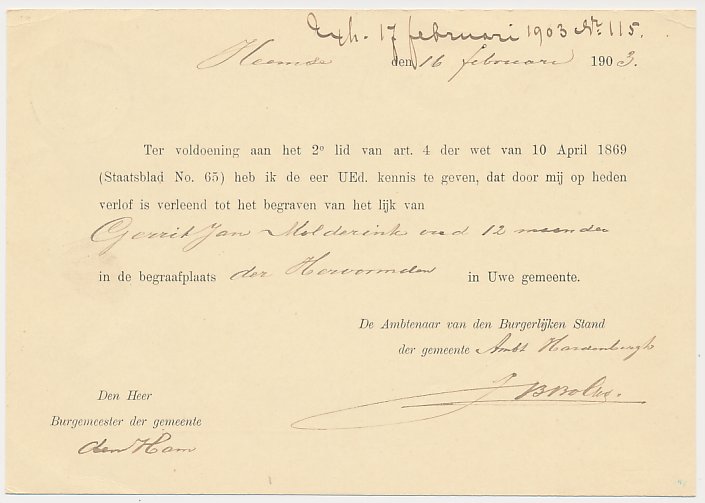 Exh. 17 februari 1903 No. 115.
Heemse den 16 februari 1903.
Ter voldoening aan het 2e lid van art. 4 der wet van 10 April 1869
(Staatsblad No. 65) heb ik de eer UEd. kennis te geven, dat door mij op heden
verlof is verleend tot het begraven van het lijk van
Gerrit Jan Molderink oud 12 maanden
in de begraafplaats der Hervormden in Uwe gemeente.
De Ambtenaar van den Burgerlijken Stand
der gemeente Ambt Hardenbergh
Den Heer
Burgemeester der gemeente
den Ham